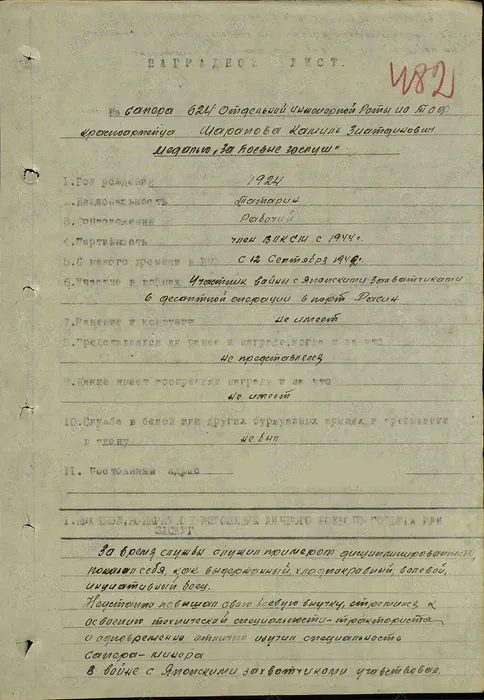 НАГРАДНОЙ ЛИСТ.
482
На сапера 624 Отдельной инженерной Роты ИО ТОФ
красноармейца Шарапова Камиль Зиатдинович
Медалью „За боевые заслуги"
1. Год рождения 1924
2. Национальность татарин
3. Соцположение Рабочий
4. Партийность член ВЛКСМ с 1944 г.
5. С какого времени в С 12 Сентября
6. Участие в войнах Участник войны с Японскими захватчиками
в десантной операции в порт Расин
7. Ранение и контузии не имеет
8. Представлялся ли ранее к награде, когда и за что
не представлялся
9. Какие имеет поощрения награды и за что
не имеет
10. Служба в белой или других буржуазных армиях и пребывание
в плену не был
11. Постоянный адрес
За время службы служил примером дисциплинированности,
показал себя, как выдержанный, хладнокровный, волевой,
инициативный боец.
Неустанно повышал свою боевую выучку, стремился к
освоению технической специальности - тракториста
и одновременно отлично изучил специальность
Сапера-минера
В войне с Японскими захватчиками участвовал.